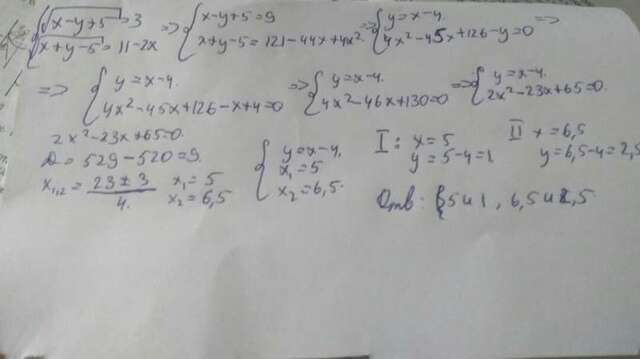 { √(x-y+5) = 3 => { x-y+5=9 => { y=x-4. =>
{ √(x+y-5) = 11-2x { x+y-5=121-44x+4x² { 4x²-45x+126-y=0
=> { y=x-4. => { y=x-4. => { y=x-4.
{ 4x²-45x+126-x+4=0 { 4x²-46x+130=0 { 2x²-23x+65=0.
2x²-23x+65=0.
D=529-520=9.
x₁,₂ = (23±3)/4. x₁=5 x₂=6,5
{ y=x-4.
x₁=5
x₂=6,5.
I: x=5
y=5-4=1.
II x=6,5
y=6,5-4=2,5
Отв: {5 и 1, 6,5 и 2,5.